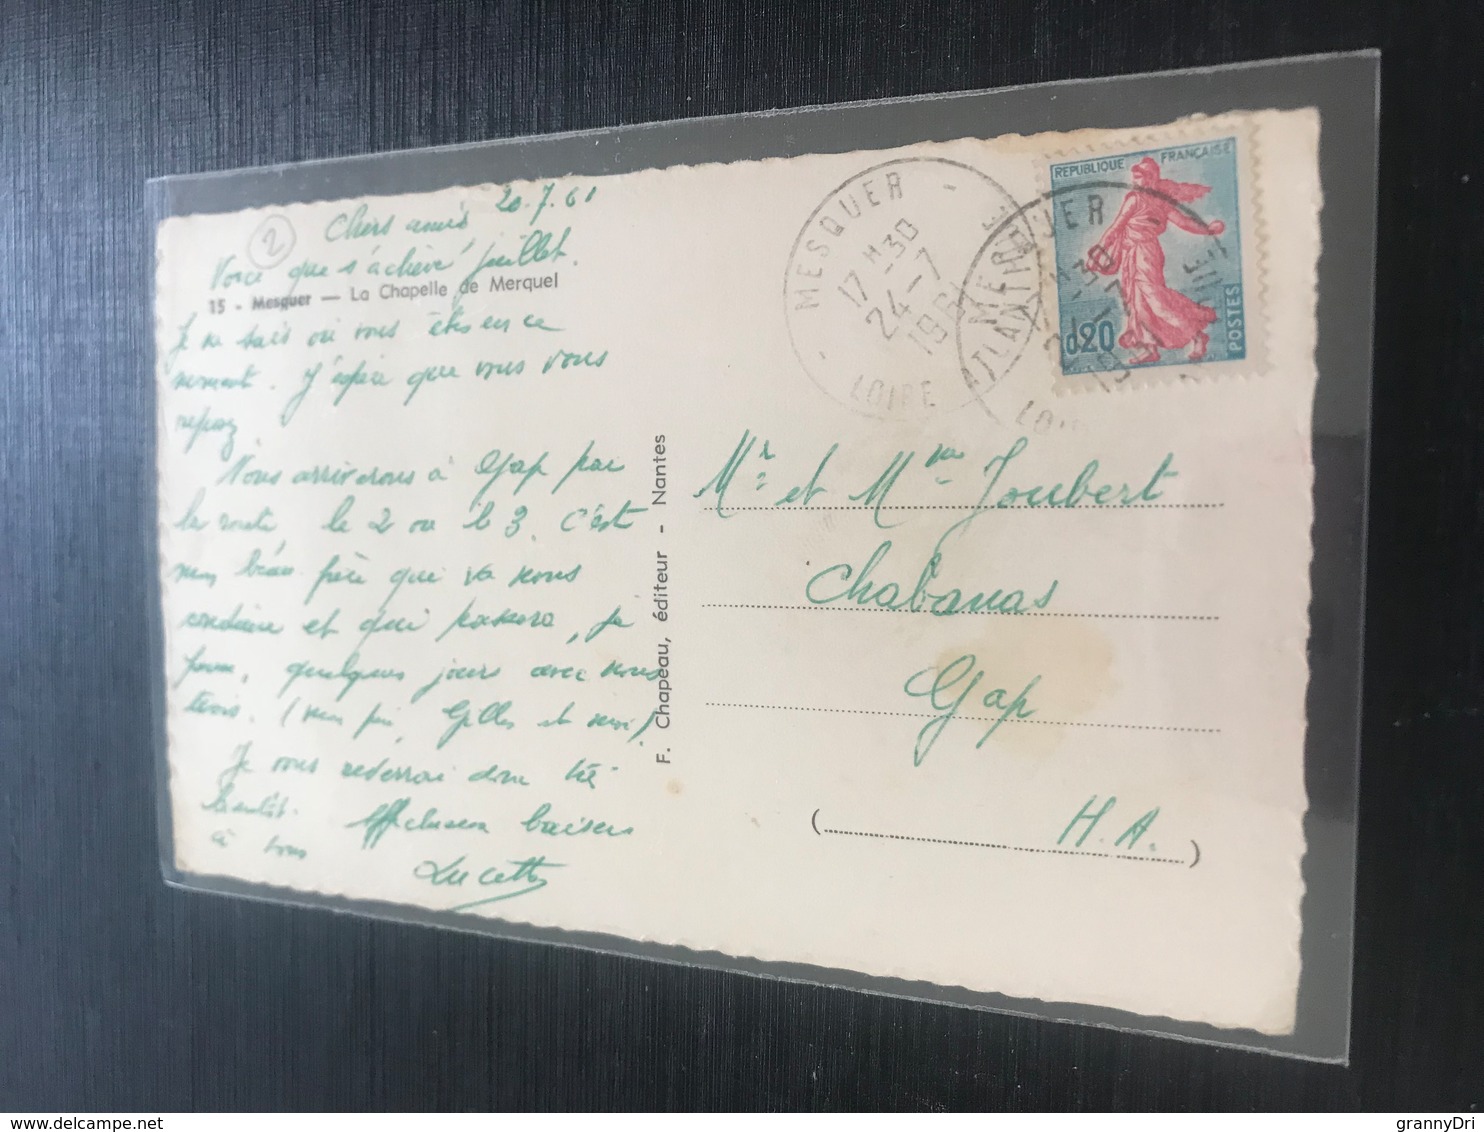 2
20.7.61
Chers amis
Voici que s'achève juillet.
15 - Mesquer — La Chapelle de Merquel
Je ne sais où vous êtes en ce
moment. J'espère que vous vous
reposez
Nous arriverons à Gap par
la route, le 2 ou le 3. C'est
mon beau frère qui va nous
conduire et qui passera, je
pense, quelques jours avec nous
trois. (mon père, Gilles et moi)
Je vous reverrai donc très
bientôt. Affectueux baisers
à tous
Lucette
F. Chapeau, éditeur - Nantes
MESQUER
17 H 30
24 - 7
1961
LOIRE ATLANTIQUE
MESQUER
LOIRE ATLANTIQUE
REPUBLIQUE FRANÇAISE
0,20
POSTES
Mr et Mme Joubert
Chabanas
Gap
(H.A.)
grannyDri